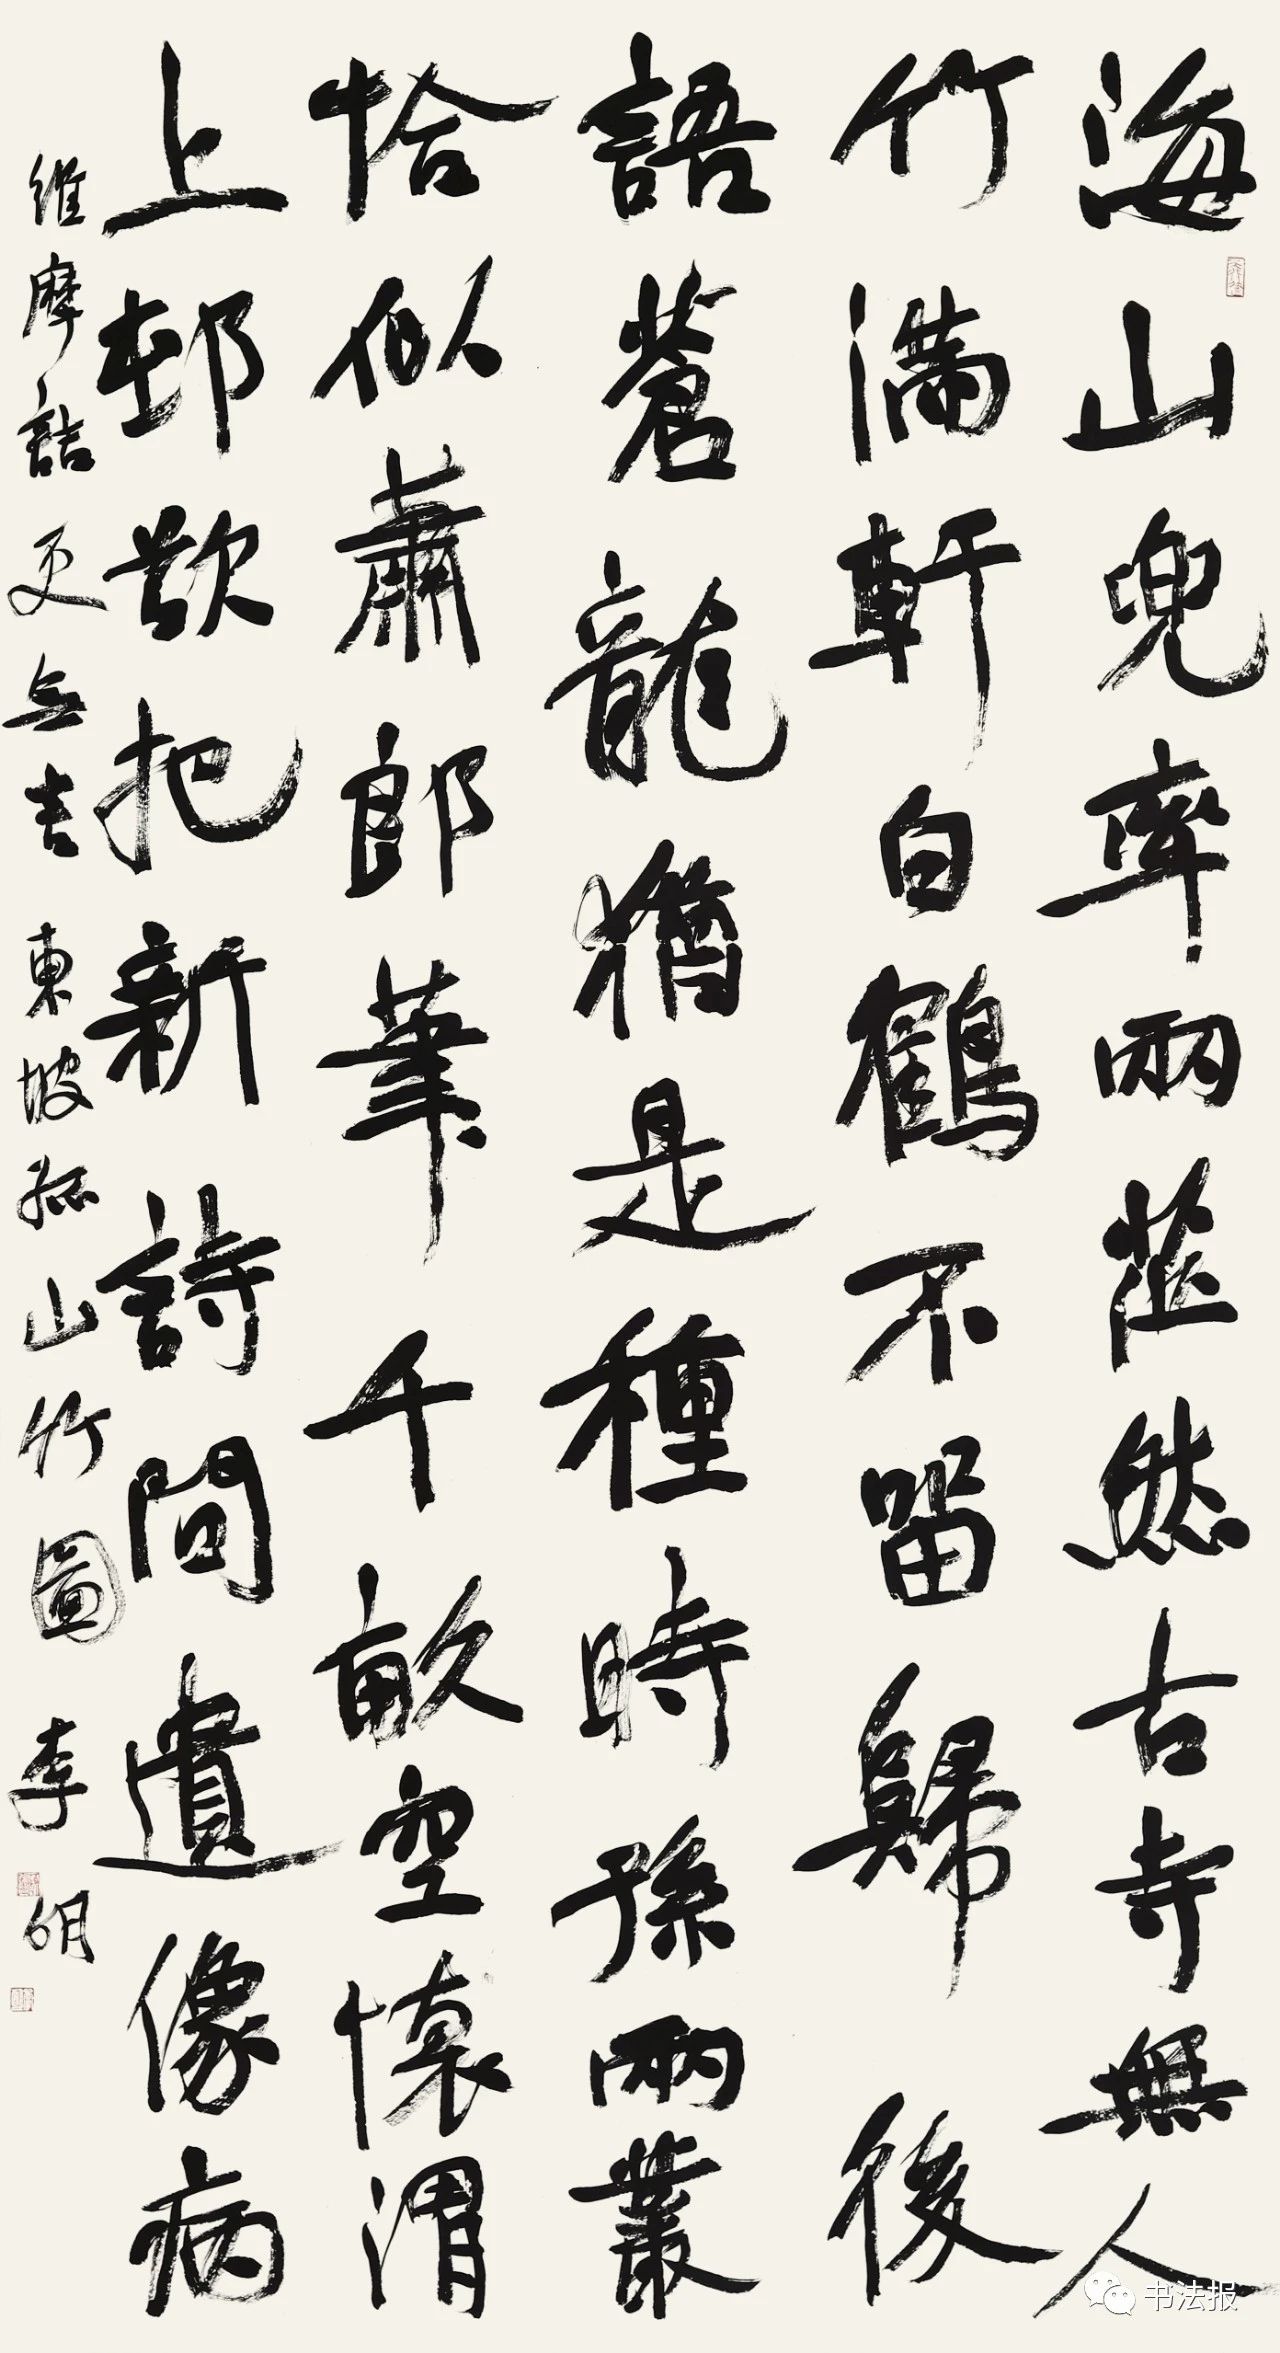 海山兜率兩茫然古寺無人
竹滿軒白鶴不留歸後
語蒼龍猶是種時孫兩叢
恰似蕭郎筆千畝空懷渭
上邨欲把新詩問遺像病
維摩詰更無言 東坡孤山竹圖 李明
书法报